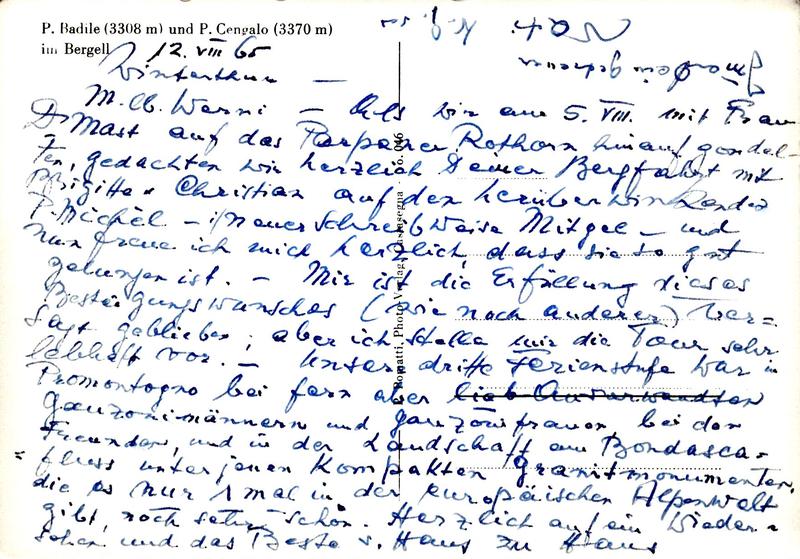 P. Badile (3308 m) und P. Cengalo (3370 m)
im Bergell
12. VIII 65
Winterthur —
M. lb. Werni — Als wir am 5. VIII. mit Frau
Dr Mast auf das Parpaner Rothorn hinauf gondel-
ten, gedachten wir herzlich Deiner Bergfahrt mit
Brigitte & Christian auf den herüberwinkenden
P. Michèl — i/neuer Schreibweise Mitgel — und
nun freue ich mich herzlich, dass sie so gut
gelungen ist. — Mir ist die Erfüllung dieses
Besteigungswunsches (wie noch anderer) ver=
sagt geblieben; aber ich stelle mir die Tour sehr
lebhaft vor. — Unsere dritte Ferienstufe war in
Promontogno bei fern aber lieb Anverwandten
Ganzonimännern und Ganzonifrauen bei den
Freunden, und in der Landschaft am Bondasca=
fluss unter jenen kompakten Granitmonumenten,
die es nur 1 mal in der europäischen Alpenwelt
gibt, noch sehr schön. Herzlich auf ein Wieder=
sehen und das Beste v. Haus zu Haus
Photo-Verlag, Castasegna · No. 046